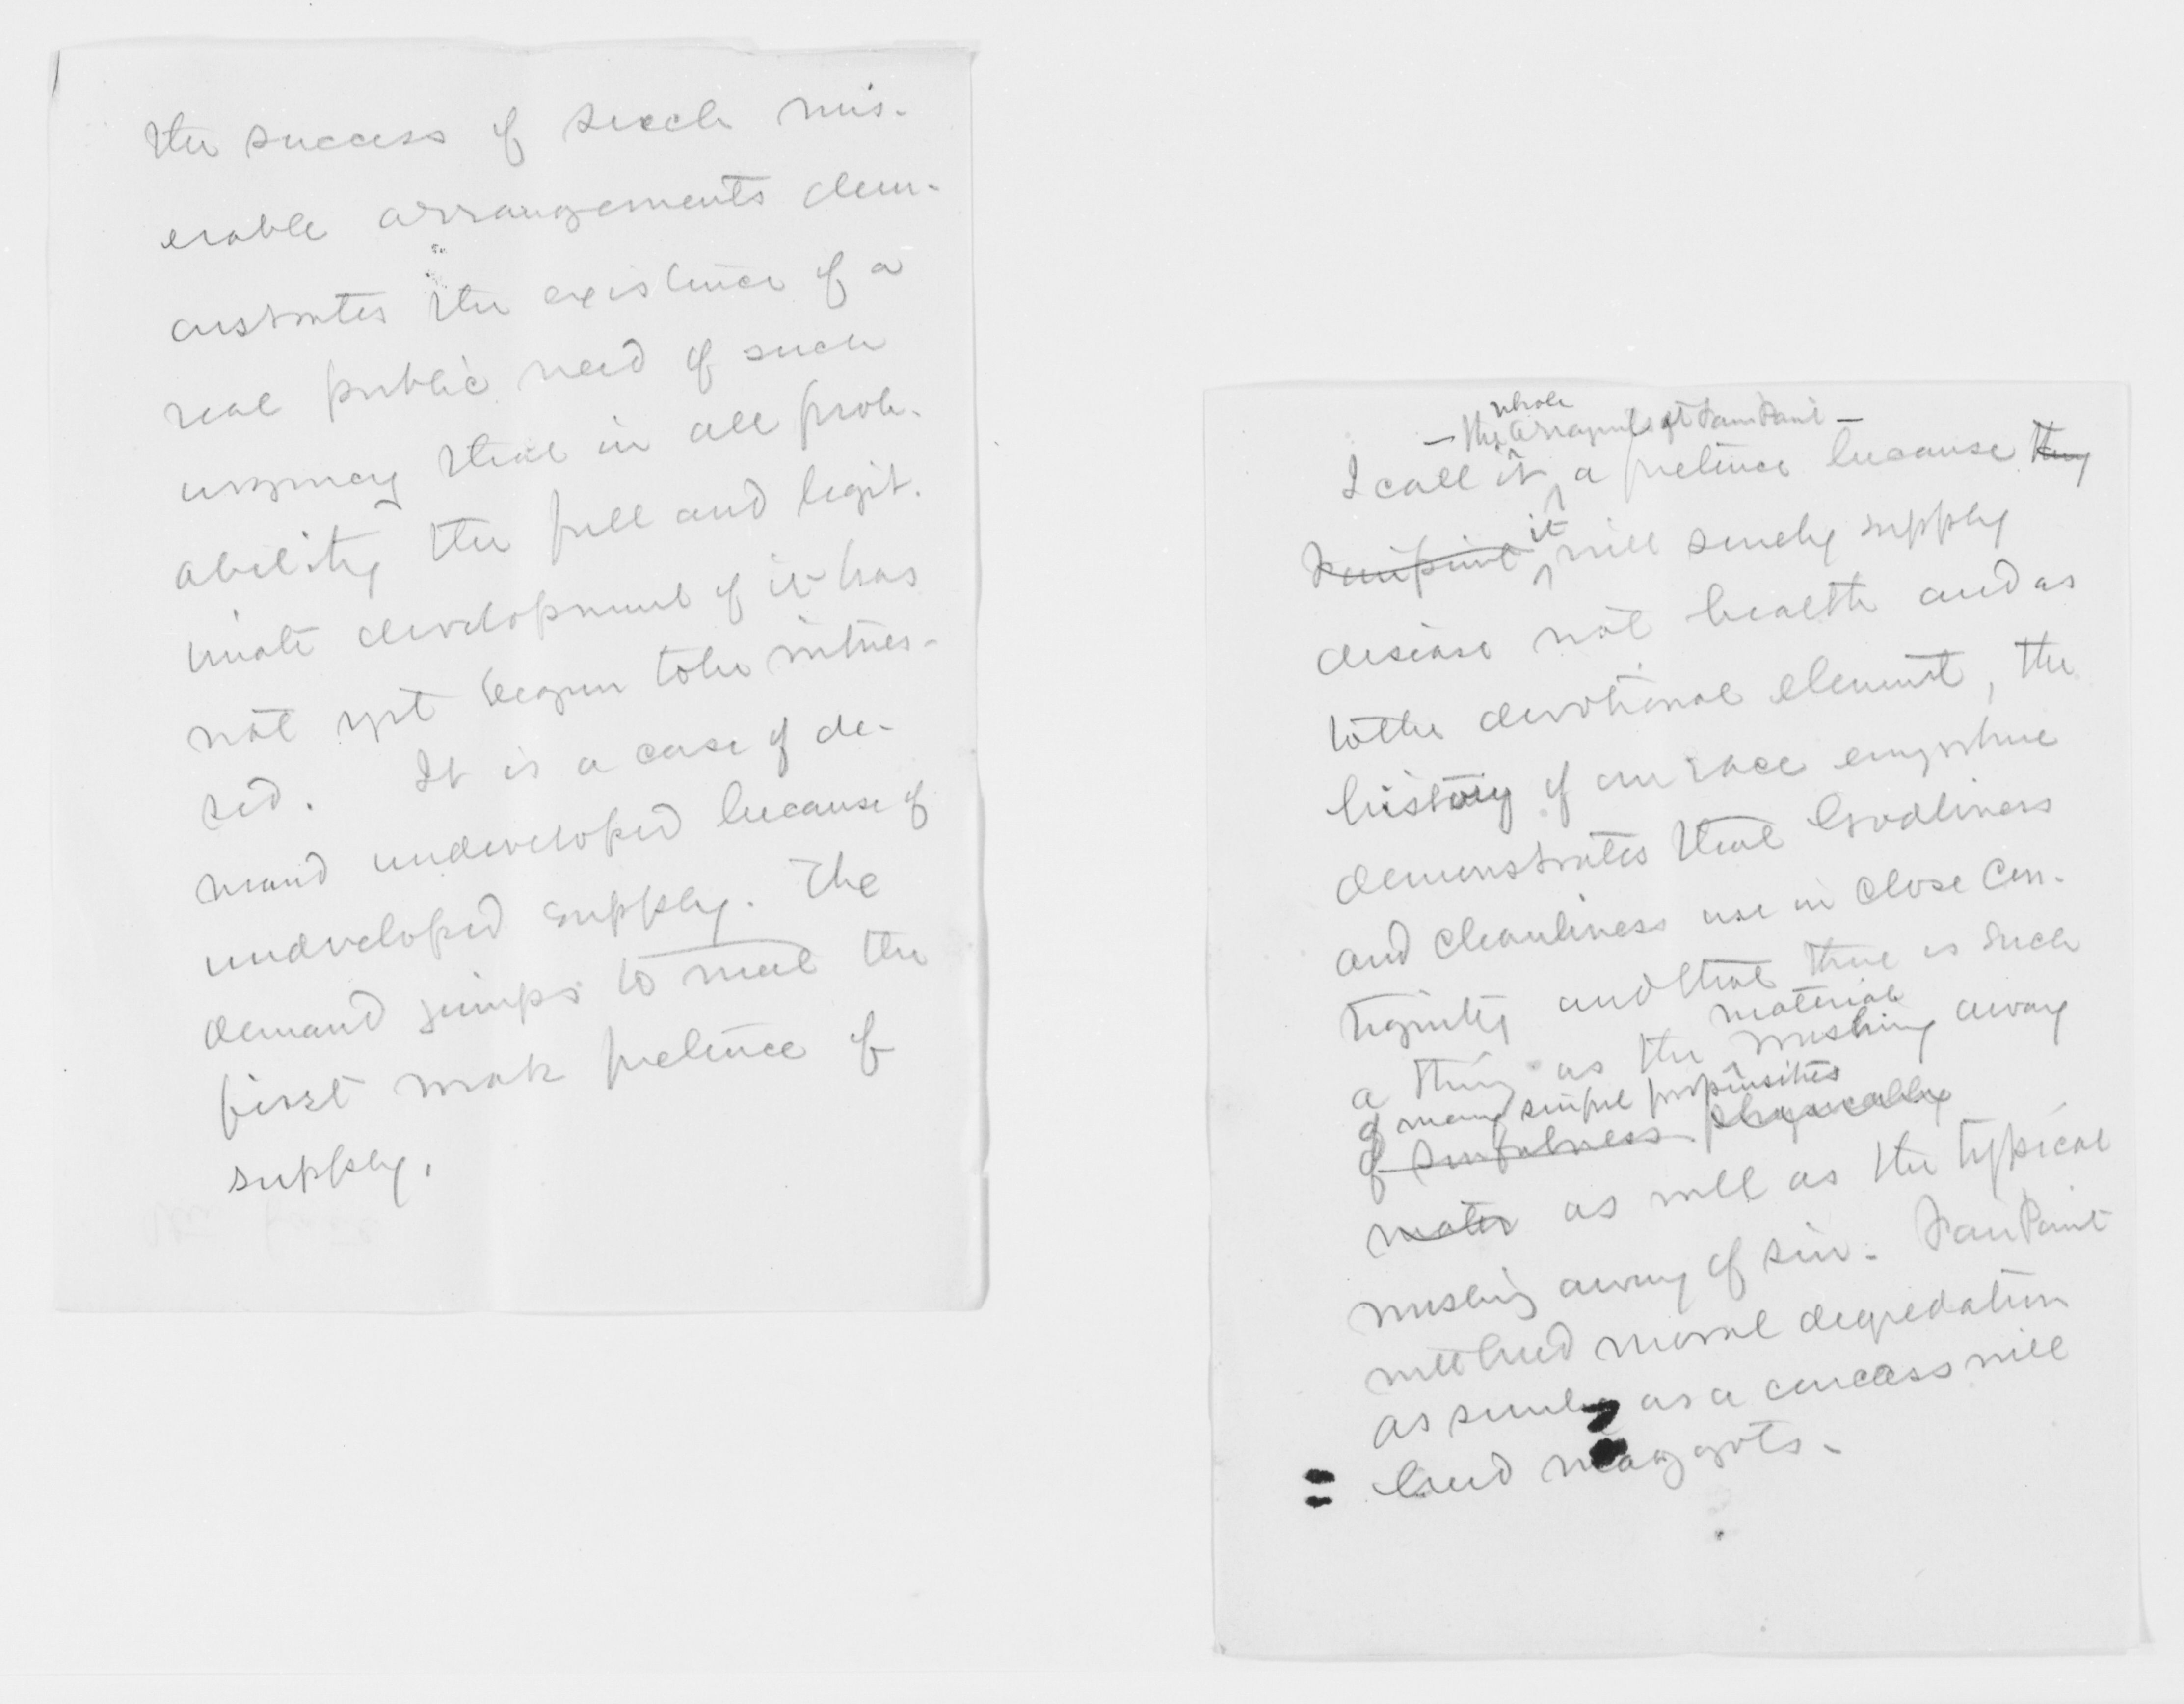 the success of such mis-
erable arrangements dem-
onstrates the existence of a
real public need of such
urgency that in all prob-
ability the full and legit-
imate development of it has
not yet begun to be witnes-
sed. It is a case of de-
mand undeveloped because of
undeveloped supply. The
demand jumps to meet the
first mok pretence of
supply.
whole
— the arragmts at FairPoint —
I call it a pretence because they
Fairpoint it will surely supply
disease not health and as
to the devotional element, the
history of our race everywhere
demonstrates that Godliness
and cleanliness are in close con-
tiguity and that there is such
material
a thing as the washing away
of many sinful propensities
of sinfulness physically
mater as well as the typical
washing away of sin. FairPoint
will breed moral degredation
as surely as a carcass will
breed maggots.